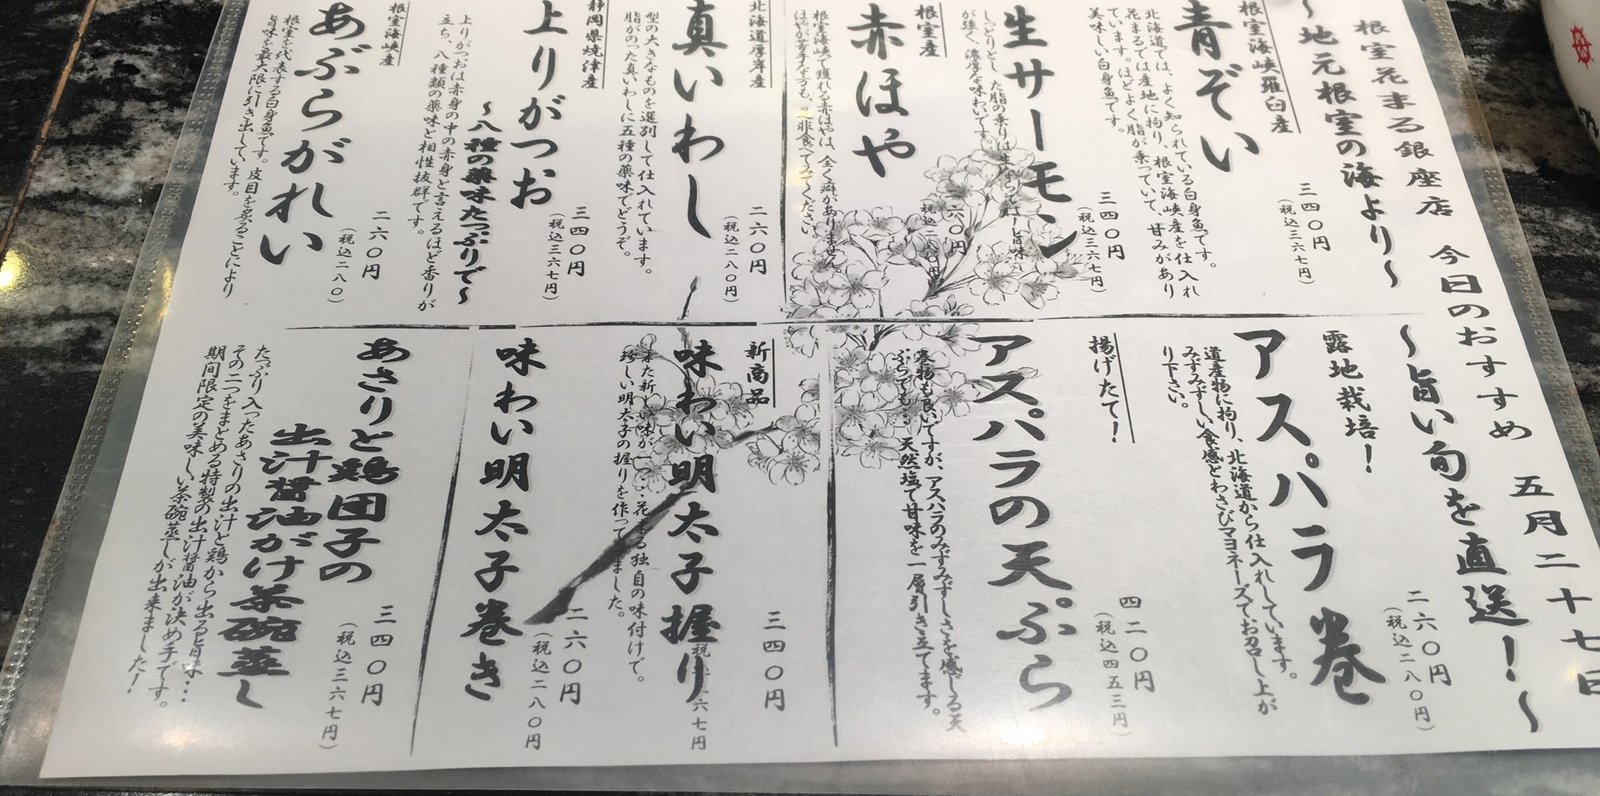 根室花まる銀座店 今日のおすすめ 五月二十七日
~地元根室の海より~
~旨い旬を直送!~
根室海峡羅臼産
青ぞい
三四〇円
(税込三六七円)
北海道では、よく知られている白身魚です。
花まるでは産地に拘り、根室海峡産を仕入れ
ています。ほどよく脂が乗っていて、甘みがあり
美味しい白身魚です。
生サーモン
三四〇円
(税込三六七円)
しっとりとした脂の乗りは生ならでは
が強く、濃厚な味わいです。
根室産
赤ほや
二六〇円
(税込二八〇円)
根室海峡で獲れる赤ほやは、全く癖がありません。
ほやが苦手な方も、是非食べてみてください。
北海道厚岸産
真いわし
二六〇円
(税込二八〇円)
型の大きなものを選別して仕入れています。
脂がのった真いわしに五種の薬味でどうぞ。
静岡県焼津産
上りがつお
~八種の薬味たっぷりで~
三四〇円
(税込三六七円)
上りがつおは赤身の中の赤身と言えるほど香りが
立ち、八種類の薬味と相性抜群です。
根室海峡産
あぶらがれい
二六〇円
(税込二八〇)
根室を代表する白身魚です。皮目を炙ることにより
旨味を最大限に引き出しています。
露地栽培!
アスパラ巻
二六〇円
(税込二八〇円)
道産物に拘り、北海道から仕入れしています。
みずみずしい食感とわさびマヨネーズでお召し上が
り下さい。
揚げたて!
アスパラの天ぷら
四二〇円
(税込四五三円)
巻物も良いですが、アスパラのみずみずしさを感じる天
ぷらでも…天然塩で甘味を一層引き立てます。
新商品
味わい明太子握り
三四〇円
六七円
また新しい味が一つ…花まる独自の味付けで。
珍しい明太子の握りを作ってみました。
味わい明太子巻き
二六〇円
(税込二八〇円
あさりと鶏団子の
出汁醤油がけ茶碗蒸し
三四〇円
(税込三六七円)
たっぷり入ったあさりの出汁と鶏から出る旨味…
その二つをまとめる特製の出汁醤油が決め手です。
期間限定の美味しい茶碗蒸しが出来ました!